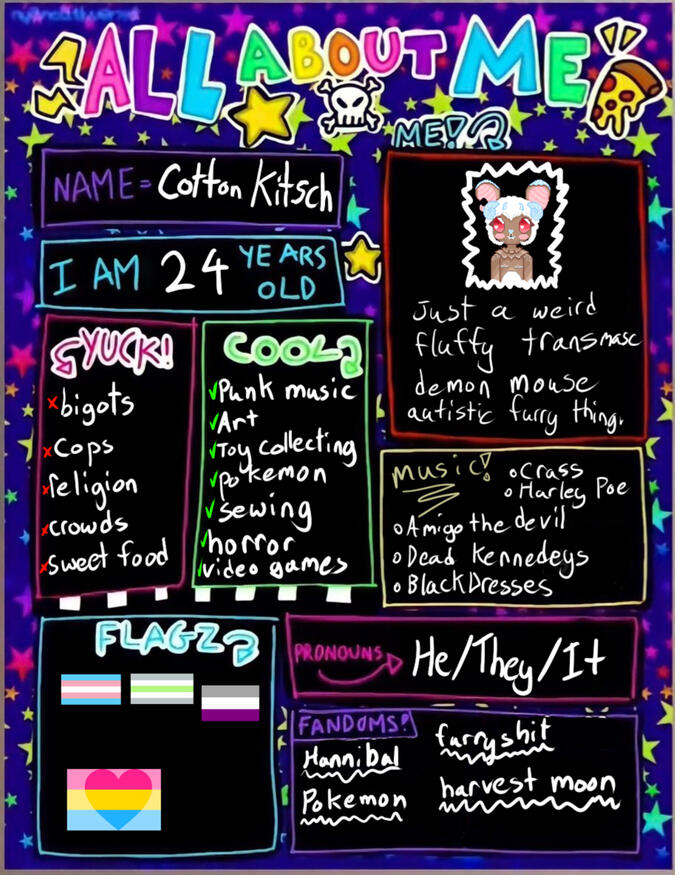 ALL ABOUT ME
ME!?
NAME= Cotton Kitsch
I AM 24 YEARS OLD
Just a weird
fluffy transmasc
demon mouse
autistic furry thing.
YUCK!
bigots
cops
religion
crowds
sweet food
COOL
Punk music
Art
Toy collecting
pokemon
sewing
horror
video games
MUSIC!
Crass
Harley Poe
Amigo the devil
Dead Kennedeys
Black Dresses
FLAGZ
PRONOUNS He/They/It
FANDOMS?
Hannibal
furryshit
Pokemon
harvest moon